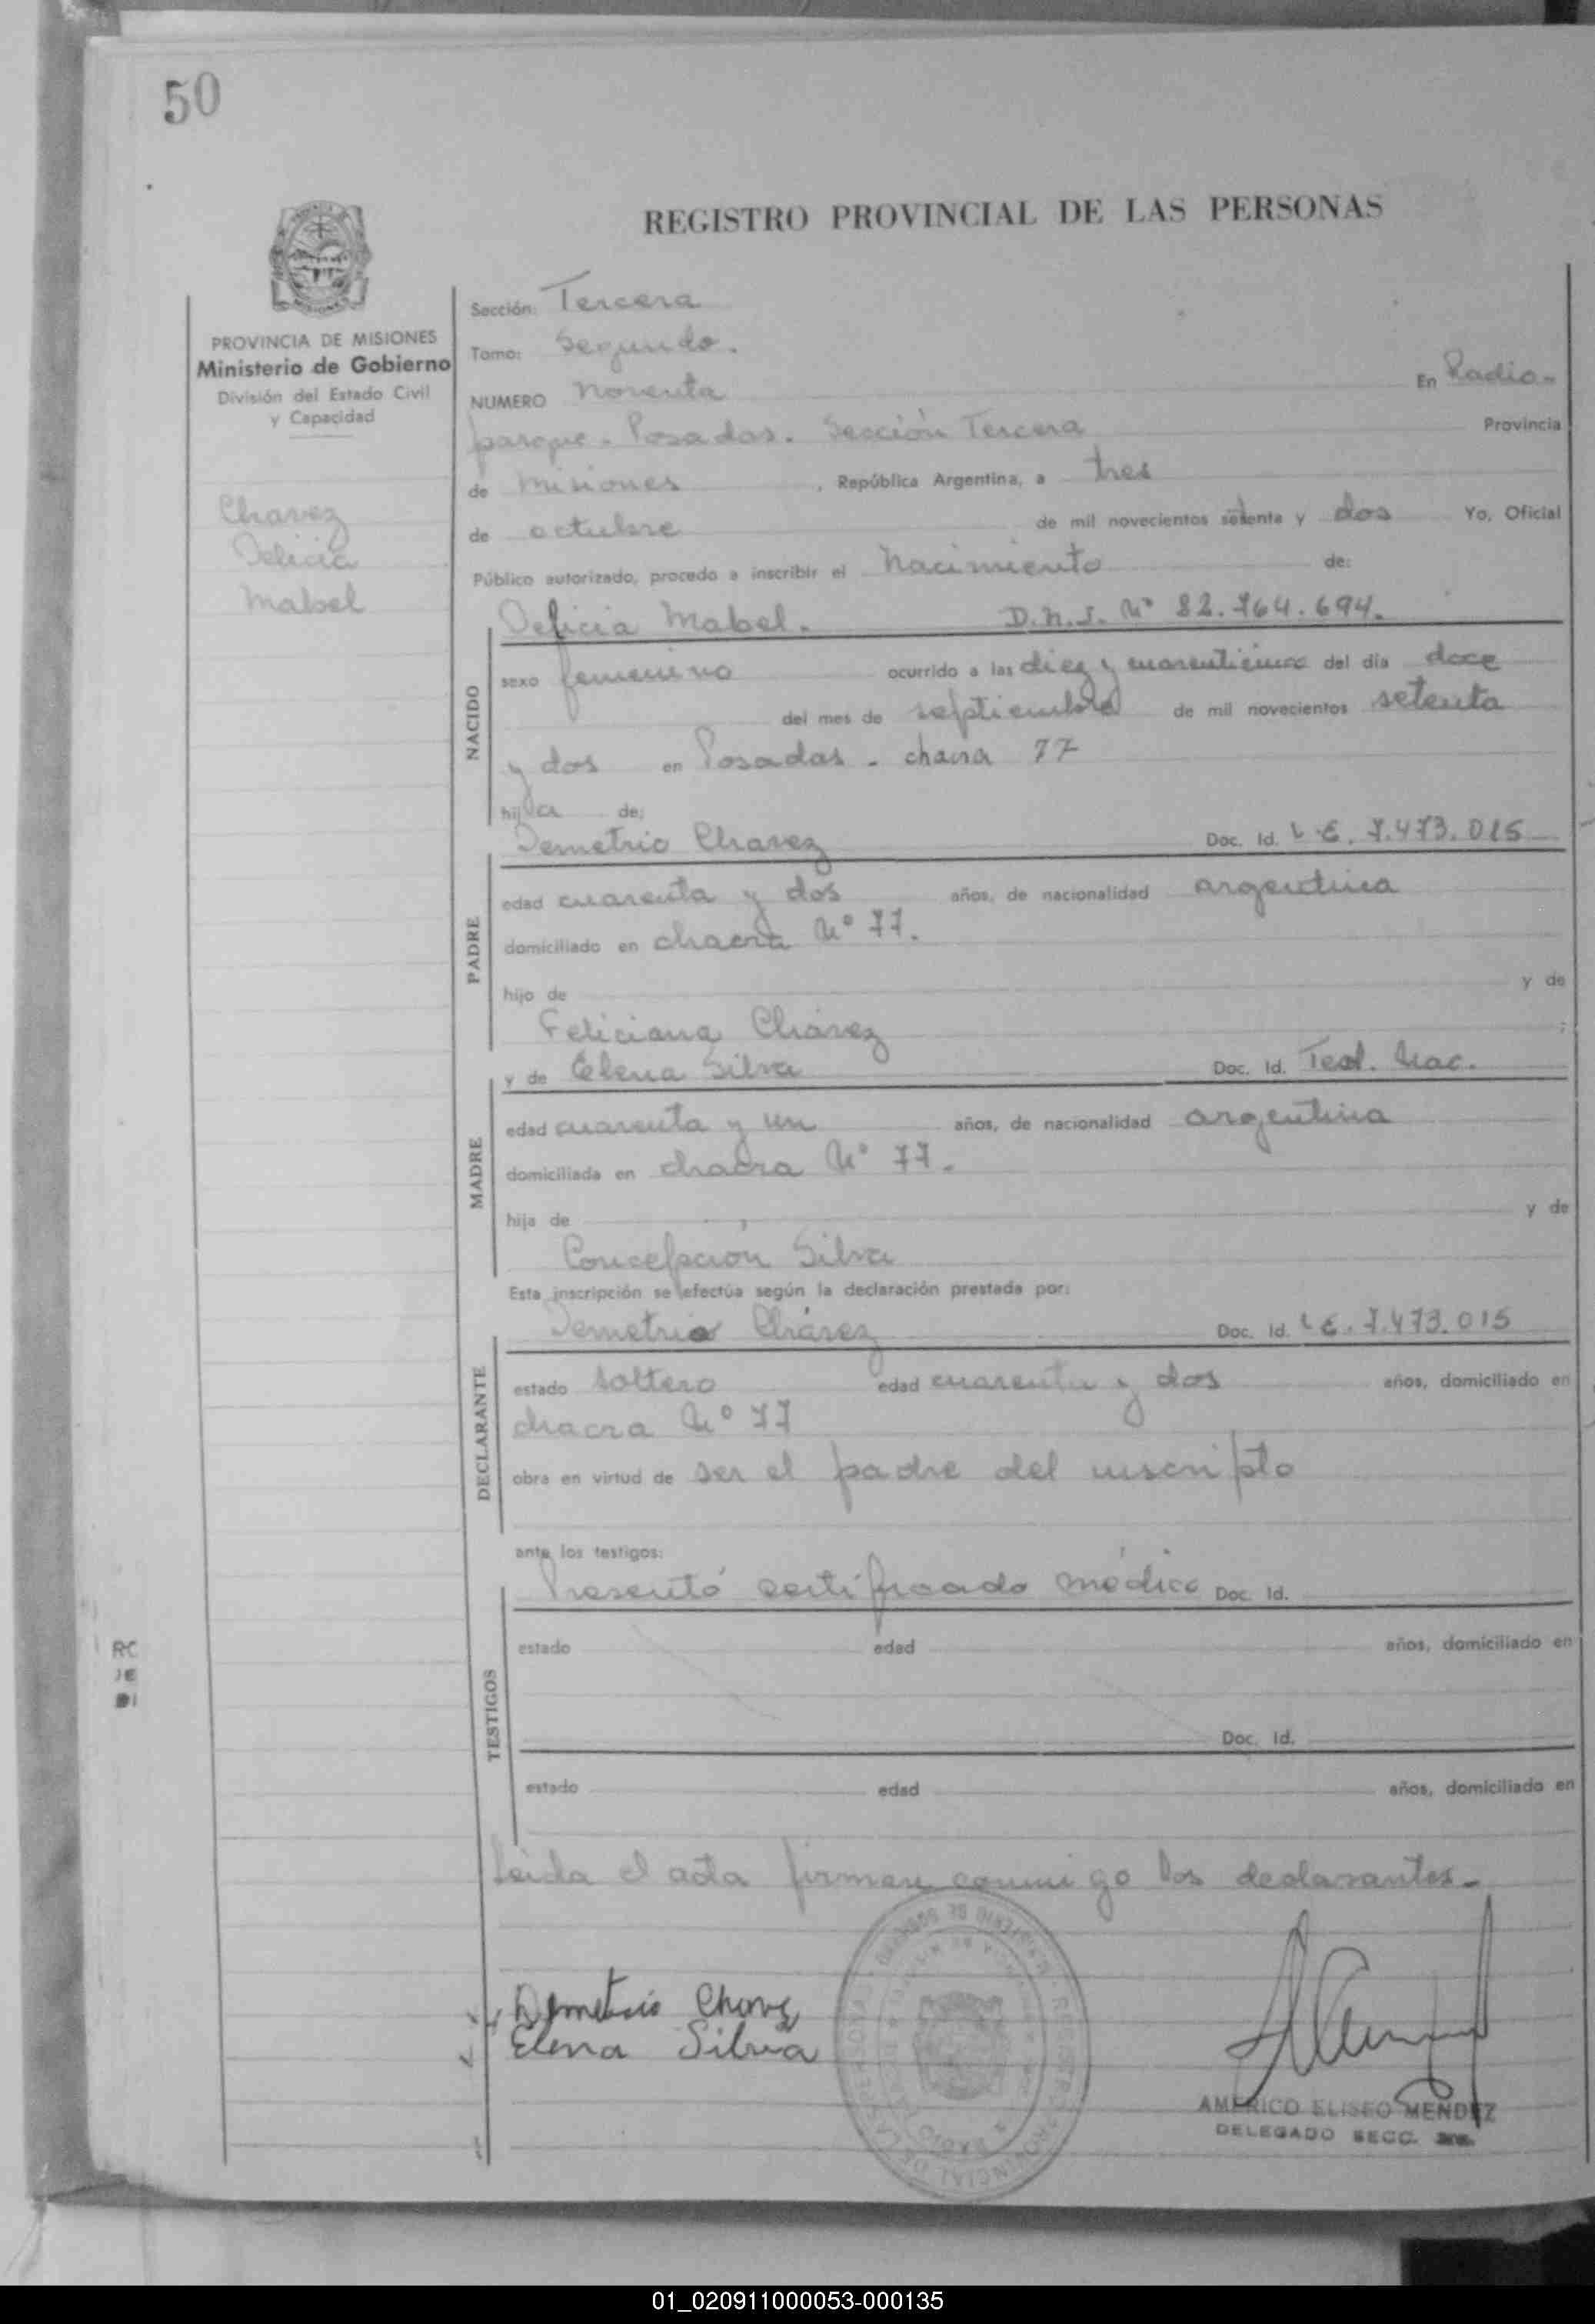 50
REGISTRO PROVINCIAL DE LAS PERSONAS
PROVINCIA DE MISIONES
Ministerio de Gobierno
División del Estado Civil
y Capacidad
Chavez
Delicia
Mabel
Sección: Tercera
Tomo: Segundo.
NUMERO Noventa En Radio-
parque - Posadas. Sección Tercera Provincia
de Misiones, República Argentina, a tres
de octubre de mil novecientos setenta y dos Yo, Oficial
Público autorizado, procedo a inscribir el Nacimiento de:
Delicia Mabel. D.N.I. Nº 82.764.694.
NACIDO
sexo femenino ocurrido a las diez y cuarenticinco del día doce
del mes de septiembre de mil novecientos setenta
y dos en Posadas - chacra 77
hija de:
Demetrio Chavez Doc. Id. L.E. 7.473.015
PADRE
edad cuarenta y dos años, de nacionalidad argentina
domiciliado en chacra Nº 77.
hijo de y de
Feliciana Chávez ;
y de Elena Silva Doc. Id. Test. Nac.
MADRE
edad cuarenta y un años, de nacionalidad argentina
domiciliada en chacra Nº 77.
hija de y de
Concepción Silva
Esta inscripción se efectúa según la declaración prestada por:
Demetrio Chávez Doc. Id. L.E. 7.473.015
DECLARANTE
estado soltero edad cuarenta y dos años, domiciliado en
chacra Nº 77
obra en virtud de ser el padre del inscripto
ante los testigos:
Presentó certificado médico Doc. Id.
TESTIGOS
estado edad años, domiciliado en
Doc. Id.
estado edad años, domiciliado en
Leida el acta firman conmigo los declarantes.-
Demetrio Chavez
Elena Silva
AMERICO ELISEO MENDEZ
DELEGADO SECC. 3ra.
01_020911000053-000135